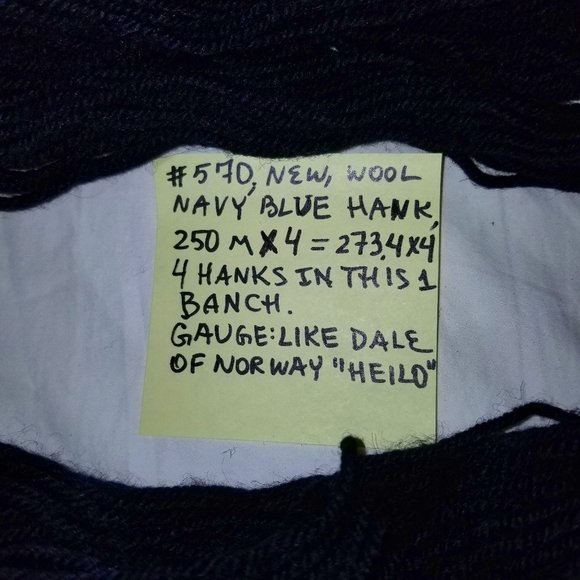 #570, NEW, WOOL
NAVY BLUE HANK,
250 M X 4 = 273,4X4
4 HANKS IN THIS 1
BANCH.
GAUGE: LIKE DALE
OF NORWAY "HEILO"